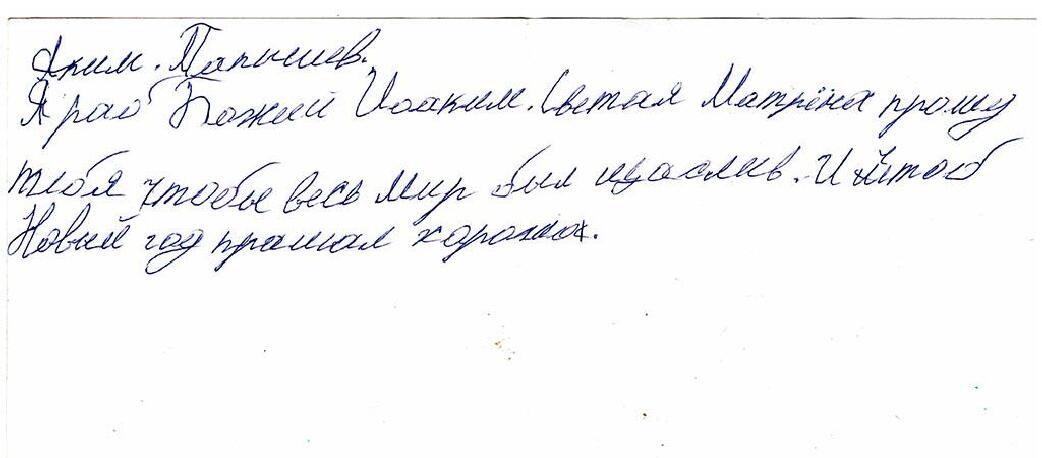 Аким. Папышев.
Я раб Божий Иоаким. Светая Матрёна прошу
тебя чтобы весь Мир был щаслив. И чтоб
Новый год прашол харашо.